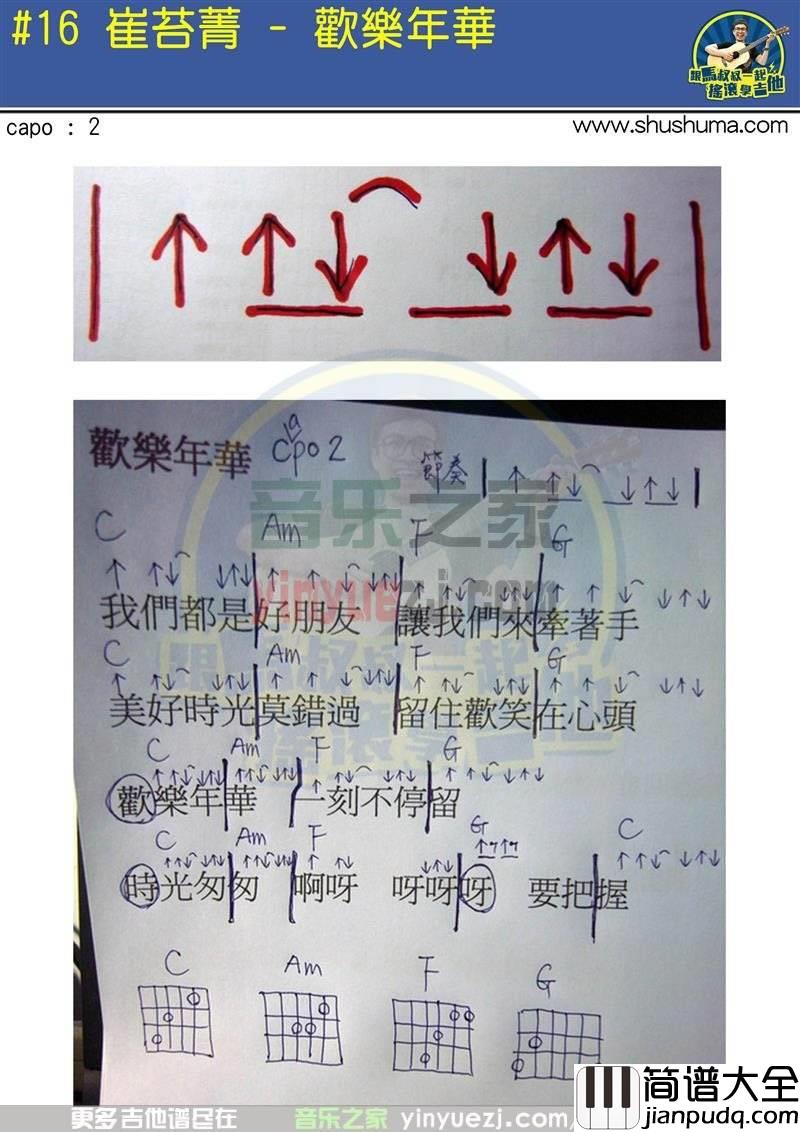 #16 崔苔菁 - 歡樂年華
跟馬叔叔一起
搖滾學吉他
capo : 2
www.shushuma.com
歡樂年華 capo 2 節奏
音乐之家
yinyuezj.com
C Am F G
我們都是好朋友 讓我們來牽著手
C Am F G
美好時光莫錯過 留住歡笑在心頭
跟馬叔叔一起
搖滾學吉他
C Am F G
歡樂年華 一刻不停留
C Am F G C
時光匆匆 啊呀 呀呀呀 要把握
C Am F G
更多吉他谱尽在 音乐之家 yinyuezj.com/
简谱大全
jianpudq.com